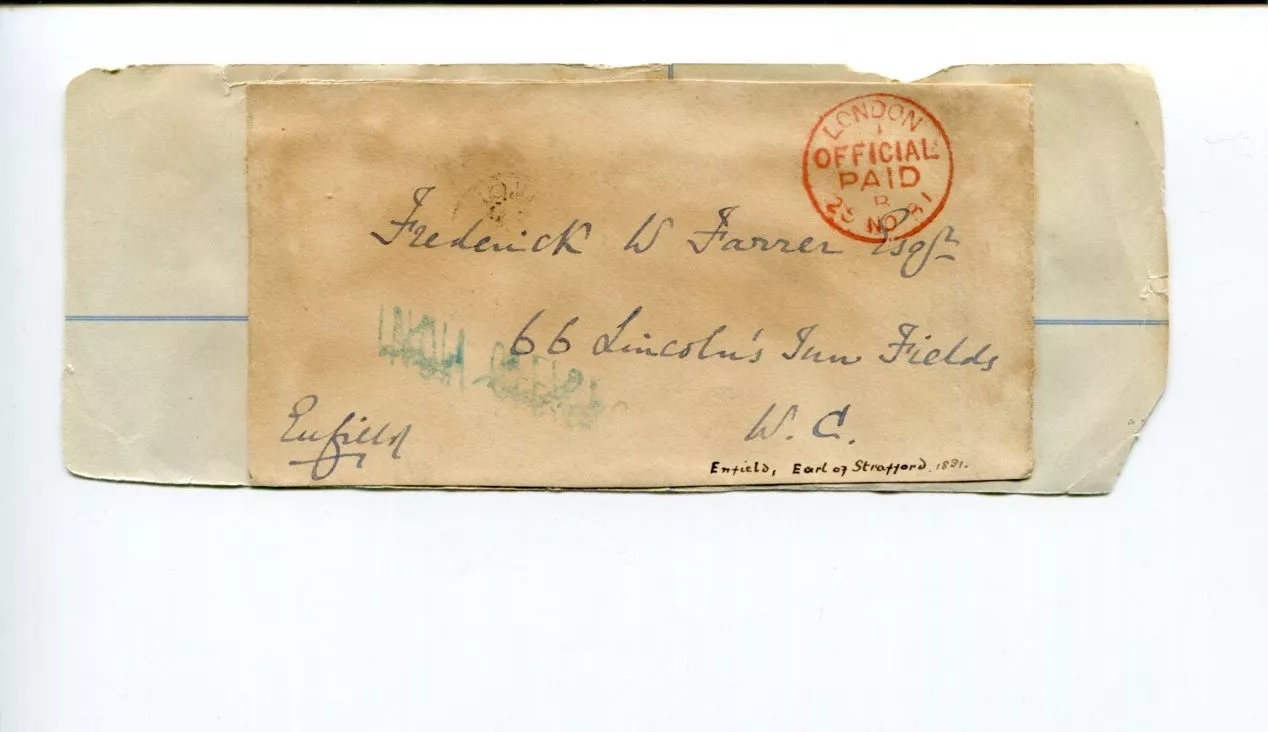 LONDON
OFFICIAL
PAID
B
NO 81
Frederick W Farrer Esqr
66 Lincoln's Inn Fields
W. C.
Enfield
Enfield, Earl of Strafford. 1881.